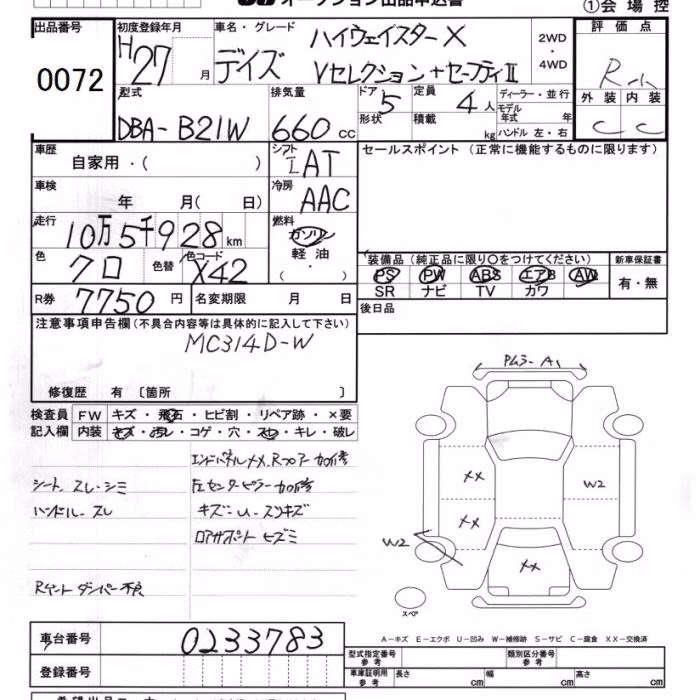 オークション出品申込書
①会場控
出品番号
0072
初度登録年月
H27 月
車名・グレード
デイズ ハイウェイスターX
Vセレクション+セーフティII
2WD
・
4WD
評価点
R-
外装 内装
C C
型式
DBA-B21W
排気量
660 cc
ドア
5
形状
定員
4人
積載
kg
ディーラー・並行
モデル
年式 年
ハンドル 左・右
車歴
自家用・( )
シフト
IAT
セールスポイント(正常に機能するものに限ります)
車検
年 月( 日)
冷房
AAC
走行
10万5千928km
燃料
ガソリン
軽油
( ・ )
色
クロ
色替
色コード
X42
装備品(純正品に限り○をつけてください)
PS PW ABS エアB AW
SR ナビ TV カワ
新車保証書
有・無
R券
7750円
名変期限 月 日
後日品
注意事項申告欄(不具合内容等は具体的に記入して下さい)
MC314D-W
修復歴 有 〔箇所 〕
検査員
記入欄
FW キズ・飛石・ヒビ割・リペア跡・×要
内装 キズ・汚レ・コゲ・穴・スレ・キレ・破レ
エンドパネルXX.Rフロアー加修
シート スレ・シミ
左センターピラー加修
ハンドル スレ
キズ-U-スリキズ
ロアサポート ヒズミ
Rゲート ダンパー不良
A1
XX
W2
XX
W2
XX
スペア
A-キズ E-エクボ U-凹み W-補修跡 S-サビ C-腐食 XX-交換済
車台番号
0233783
登録番号
型式指定番号
参考
類別区分番号
参考
車庫証明用
参考
長さ cm
幅 cm
高さ cm